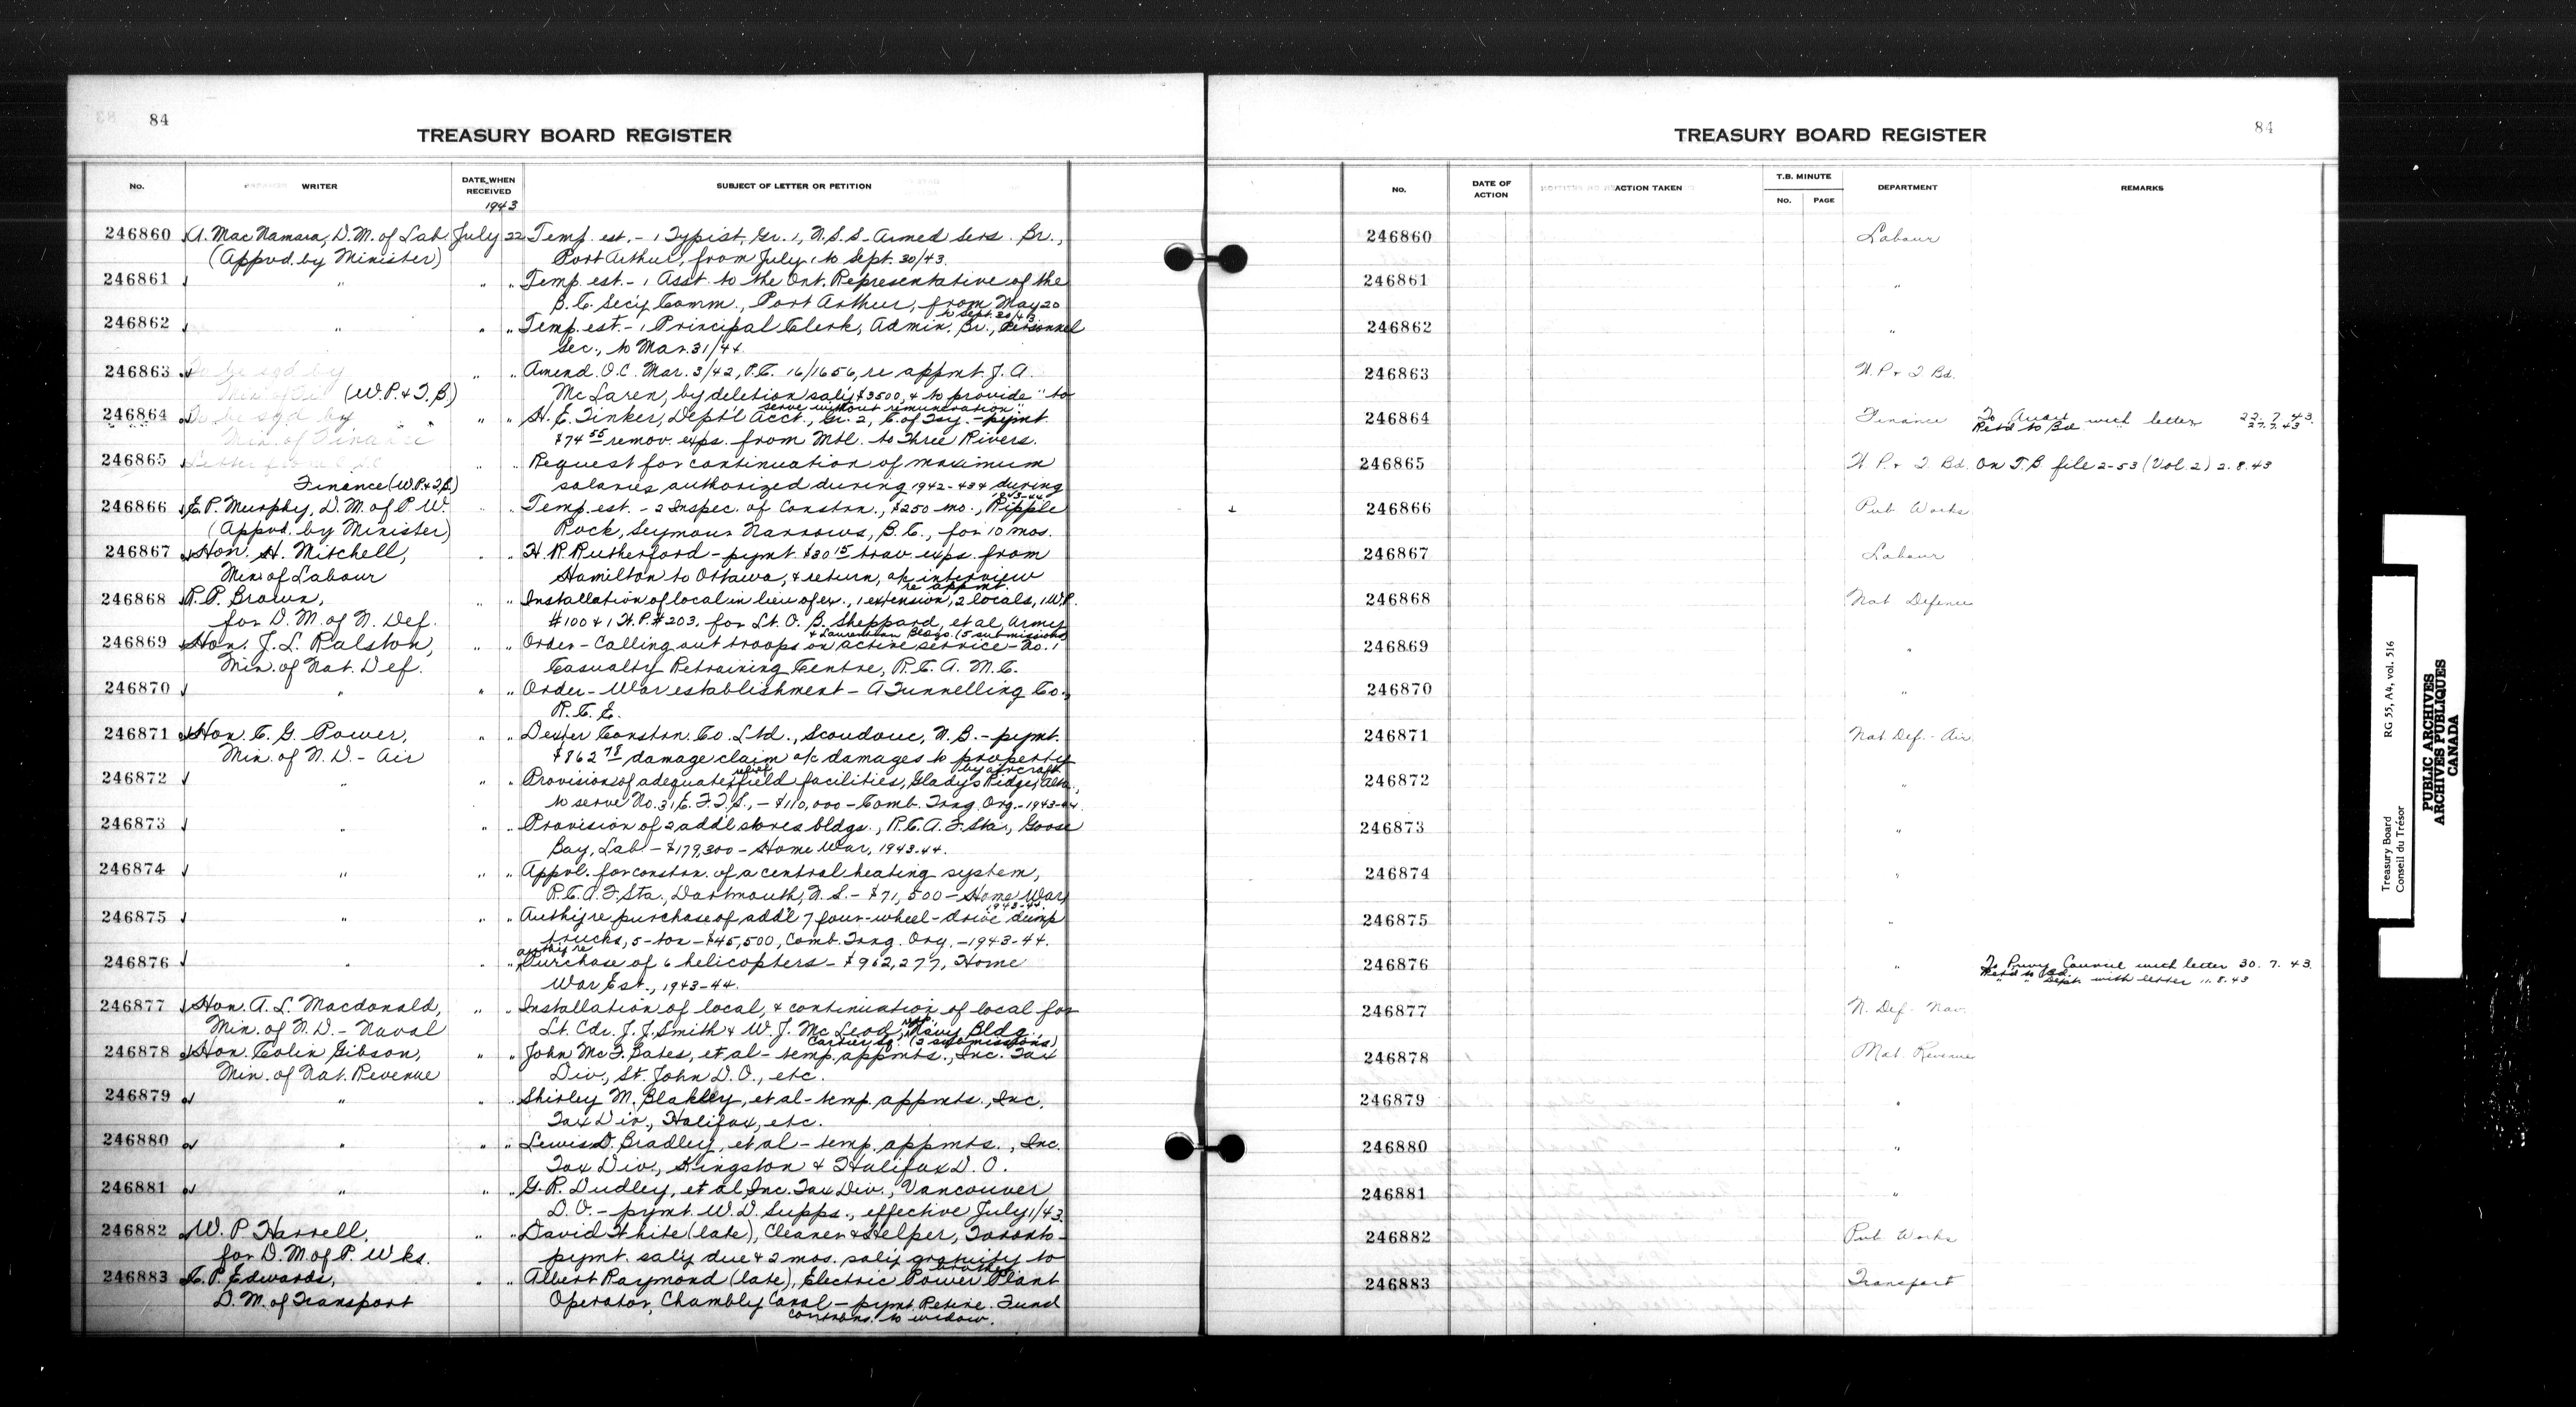 84
TREASURY BOARD REGISTER
No. WRITER DATE WHEN RECEIVED SUBJECT OF LETTER OR PETITION
1943
246860 A. MacNamara, D.M. of Lab. July 22 Temp. est. - 1 Typist, Gr. 1, N.S.S. Armed Sers. Br.,
(Appvd. by Minister) Port Arthur, from July 1 to Sept. 30/43.
246861 " " " Temp. est. - 1 Asst. to the Ont. Representative of the
B.C. Sec'y Comm., Port Arthur, from May 20
to Sept. 30/43
246862 " " " Temp. est. - 1 Principal Clerk, Admin. Br., Personnel
Sec., to Mar. 31/44.
246863 To be sgd by " " Amend. O.C. Mar. 3/42, P.C. 16/1656, re appmt. J. A.
(W.P. & T.B.) McLaren, by deletion sal'y $3500, & to provide "to
serve without remuneration".
246864 To be sgd by " " H. E. Tinker, Dept'l Acct., Gr. 2, C. of Tsy. - pymt.
Min. of Finance $74 55 remov. exps. from Mtl. to Three Rivers.
246865 Letter from " " Request for continuation of maximum
Finance (W.P. & T.B.) salaries authorized during 1942-43 & during
1943-44
246866 E. P. Murphy, D.M. of P.W. " " Temp. est. - 2 Inspec. of Constrn., $250 mo., Ripple
(Appvd. by Minister) Rock, Seymour Narrows, B.C., for 10 mos.
246867 Hon. H. Mitchell, " " H. R. Rutherford - pymt. $30 15 trav. exps. from
Min. of Labour Hamilton to Ottawa, & return, a/c interview
re appmt.
246868 R. P. Brown, " " Installation of local in lieu of ex., 1 extension, 2 locals, 1 W.P.
for D.M. of N. Def. #100 & 1 W.P. #203, for Lt. O. B. Sheppard, et al, Army
& Laurentian Bldgs. (5 submissions)
246869 Hon. J. L. Ralston, " " Order - Calling out troops on active service - No. 1
Min. of Nat. Def. Casualty Retraining Centre, R.C.A.M.C.
246870 " " " Order - War establishment - A Tunnelling Co.,
R.C.E.
246871 Hon. C. G. Power, " " Dexter Constrn. Co. Ltd., Scoudouc, N.B. - pymt.
Min. of N.D. - Air $862 78 damage claim a/c damages to property
by aircraft
246872 " " " Provision of adequate relief field facilities, Gladys Ridge, Alta.,
to serve No. 31, E.F.T.S., - $110,000 - Comb. Trng. Org. - 1943-44.
246873 " " " Provision of 2 add'l stores bldgs., R.C.A.F. Sta., Goose
Bay, Lab. - $179,300 - Home War, 1943-44.
246874 " " " Appvl. for constrn. of a central heating system,
R.C.A.F. Sta., Dartmouth, N.S. - $71,500 - Home War,
1943-44.
246875 " " " Auth'y re purchase of add'l 7 four-wheel-drive dump
trucks, 5-ton - $45,500, Comb. Trng. Org. - 1943-44.
246876 " " " auth'y re Purchase of 6 helicopters - $962,277, Home
War Est., 1943-44.
246877 Hon. A. L. Macdonald, " " Installation of local, & continuation of local for
Min. of N.D. - Naval Lt. Cdr. J. J. Smith & W. J. McLeod, resp. Navy Bldg.,
Cartier Sq. (2 submissions)
246878 Hon. Colin Gibson, " " John McF. Bates, et al - temp. appmts., Inc. Tax
Min. of Nat. Revenue Div., St. John D.O., etc.
246879 " " " Shirley M. Blakley, et al - temp. appmts., Inc.
Tax Div., Halifax, etc.
246880 " " " Lewis D. Bradley, et al - temp. appmts., Inc.
Tax Div., Kingston & Halifax D.O.
246881 " " " G. R. Dudley, et al, Inc. Tax Div., Vancouver
D.O. - pymt. W.D. Supps., effective July 1/43.
246882 W. P. Harrell, " " David White (late), Cleaner & Helper, Toronto -
for D.M. of P. Wks. pymt. sal'y due & 2 mos. sal'y gratuity to
brother
246883 C. P. Edwards, " " Albert Raymond (late), Electric Power Plant
D.M. of Transport Operator, Chambly Canal - pymt. Retire. Fund
contrbns. to widow.
84
TREASURY BOARD REGISTER
No. DATE OF ACTION ACTION TAKEN T.B. MINUTE No. PAGE DEPARTMENT REMARKS
246860 Labour
246861 "
246862 "
246863 W.P. & T. Bd.
246864 Finance To with letter 22.7.43.
Ret'd to Bd. " " 27.7.43
246865 W.P. & T. Bd. On T.B. file 2-53 (Vol. 2) 2.8.43
246866 Pub. Works
246867 Labour
246868 Nat. Defence
246869 "
246870 "
246871 Nat. Def. - Air.
246872 "
246873 "
246874 "
246875 "
246876 " To Privy Council with letter 30.7.43.
Ret'd to Bd.
" " Dept. with letter 11.8.43
246877 N. Def - Nav.
246878 Nat. Revenue
246879 "
246880 "
246881 "
246882 Pub. Works
246883 Transport
Treasury Board
Conseil du Trésor
RG 55, A4, vol. 516
PUBLIC ARCHIVES
ARCHIVES PUBLIQUES
CANADA